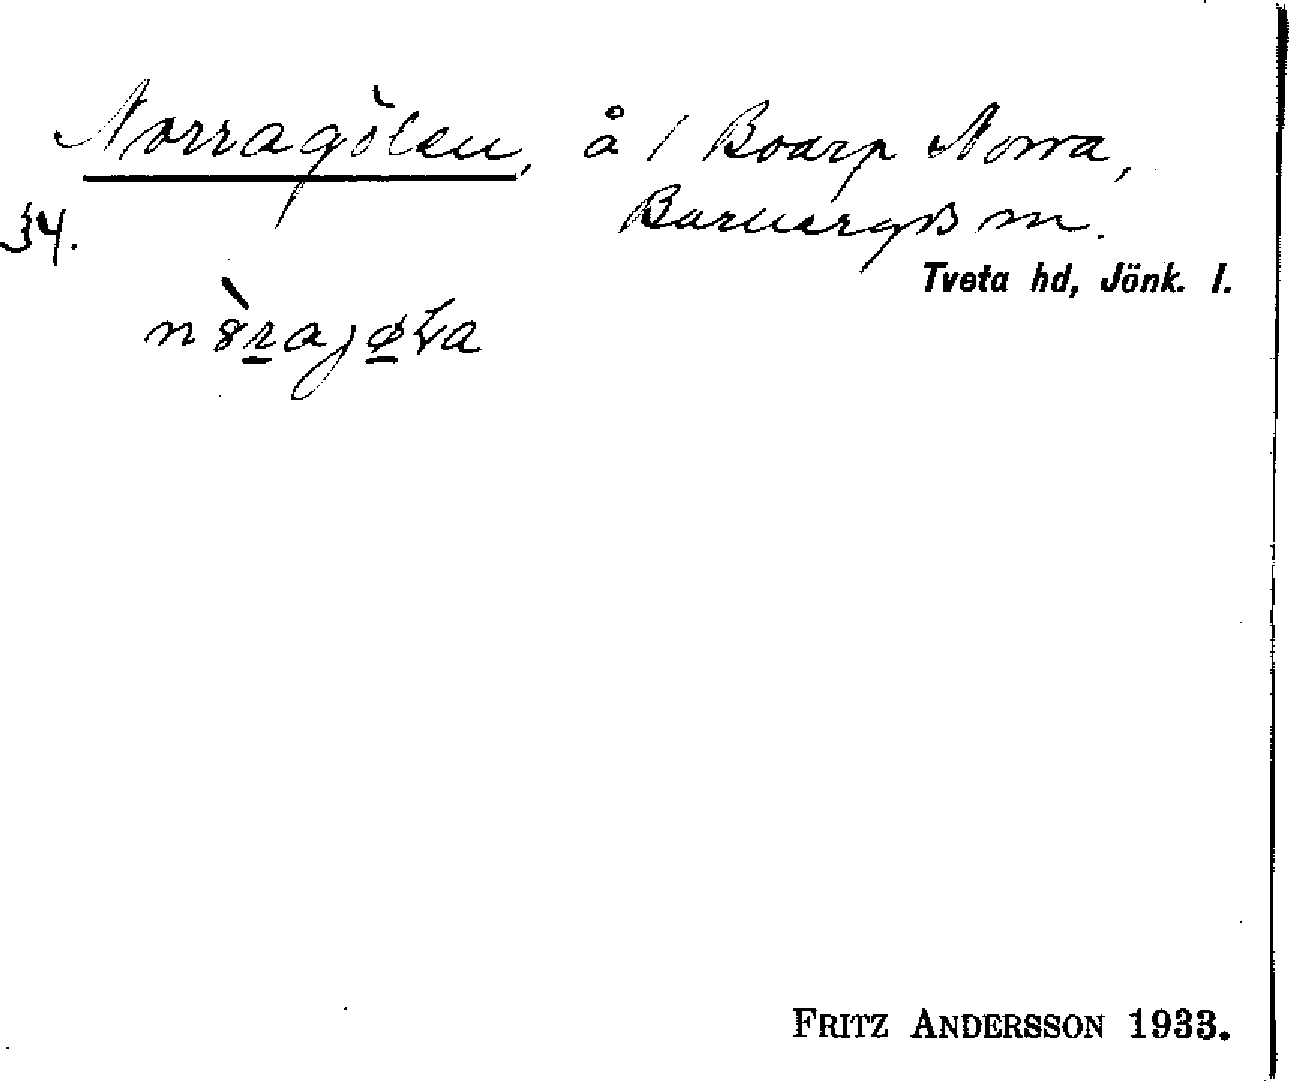 Norragölen, å / Boarp Norra,
34. Barnarps sn.
Tveta hd, Jönk. l.
FRITZ ANDERSSON 1933.